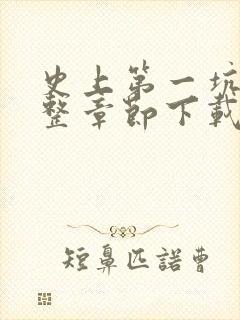 史上第一坑
整章节下载
短鼻匹諾曹